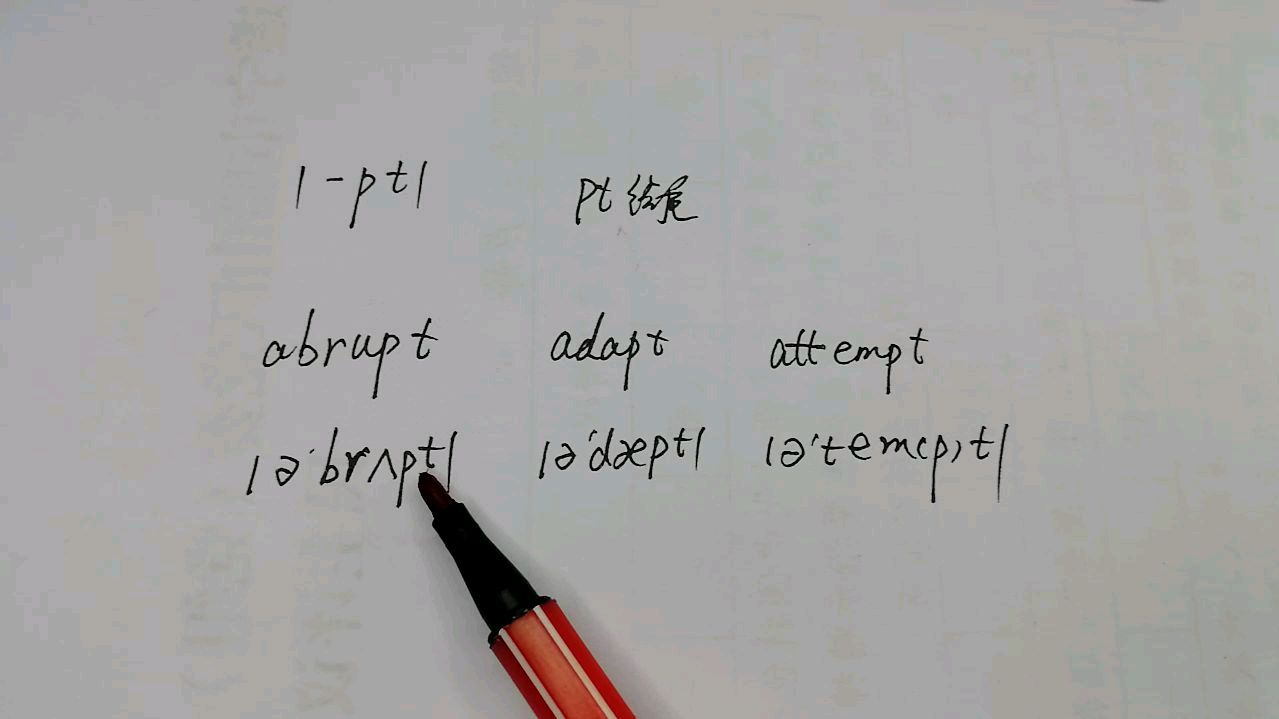 /-pt/ pt结尾
abrupt adapt attempt
/ə'brʌpt/ /ə'dæpt/ /ə'tem(p)t/